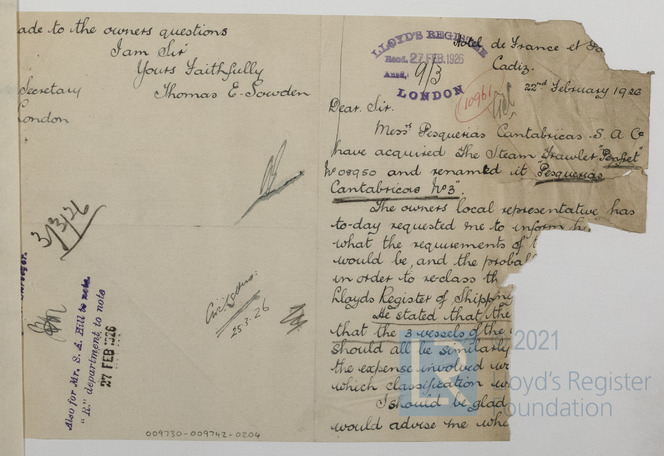 ade to the owners questions
I am Sir
Yours Faithfully
Secretary
Thomas E. Sowden
London
3/3/26
25.3.26
Also for Mr. S. A. Hill to note.
"R." department to note
27 FEB 1926
009730-009742-0204
LLOYD'S REGISTER
Recd. 27 FEB. 1926
Ansd. 9/3
LONDON
Hotel de France et
Cadiz.
22nd February 1926
10961
Dear Sir.
Messrs Pesquerias Cantabricas. S. A. Co
have acquired The Steam Trawler "Penfret"
No 08950 and renamed it Pesquerias
Cantabricas No 3".
The owners local representative has
to-day requested me to inform hi
what the requirements of t
would be, and the probab
in order to re-class th
Lloyds Register of Shipping
He stated that the
that the 3 vessels of the
should all be similarly
the expense involved wo
which classification w
I should be glad
would advise me wh
2021
Lloyd's Register
Foundation